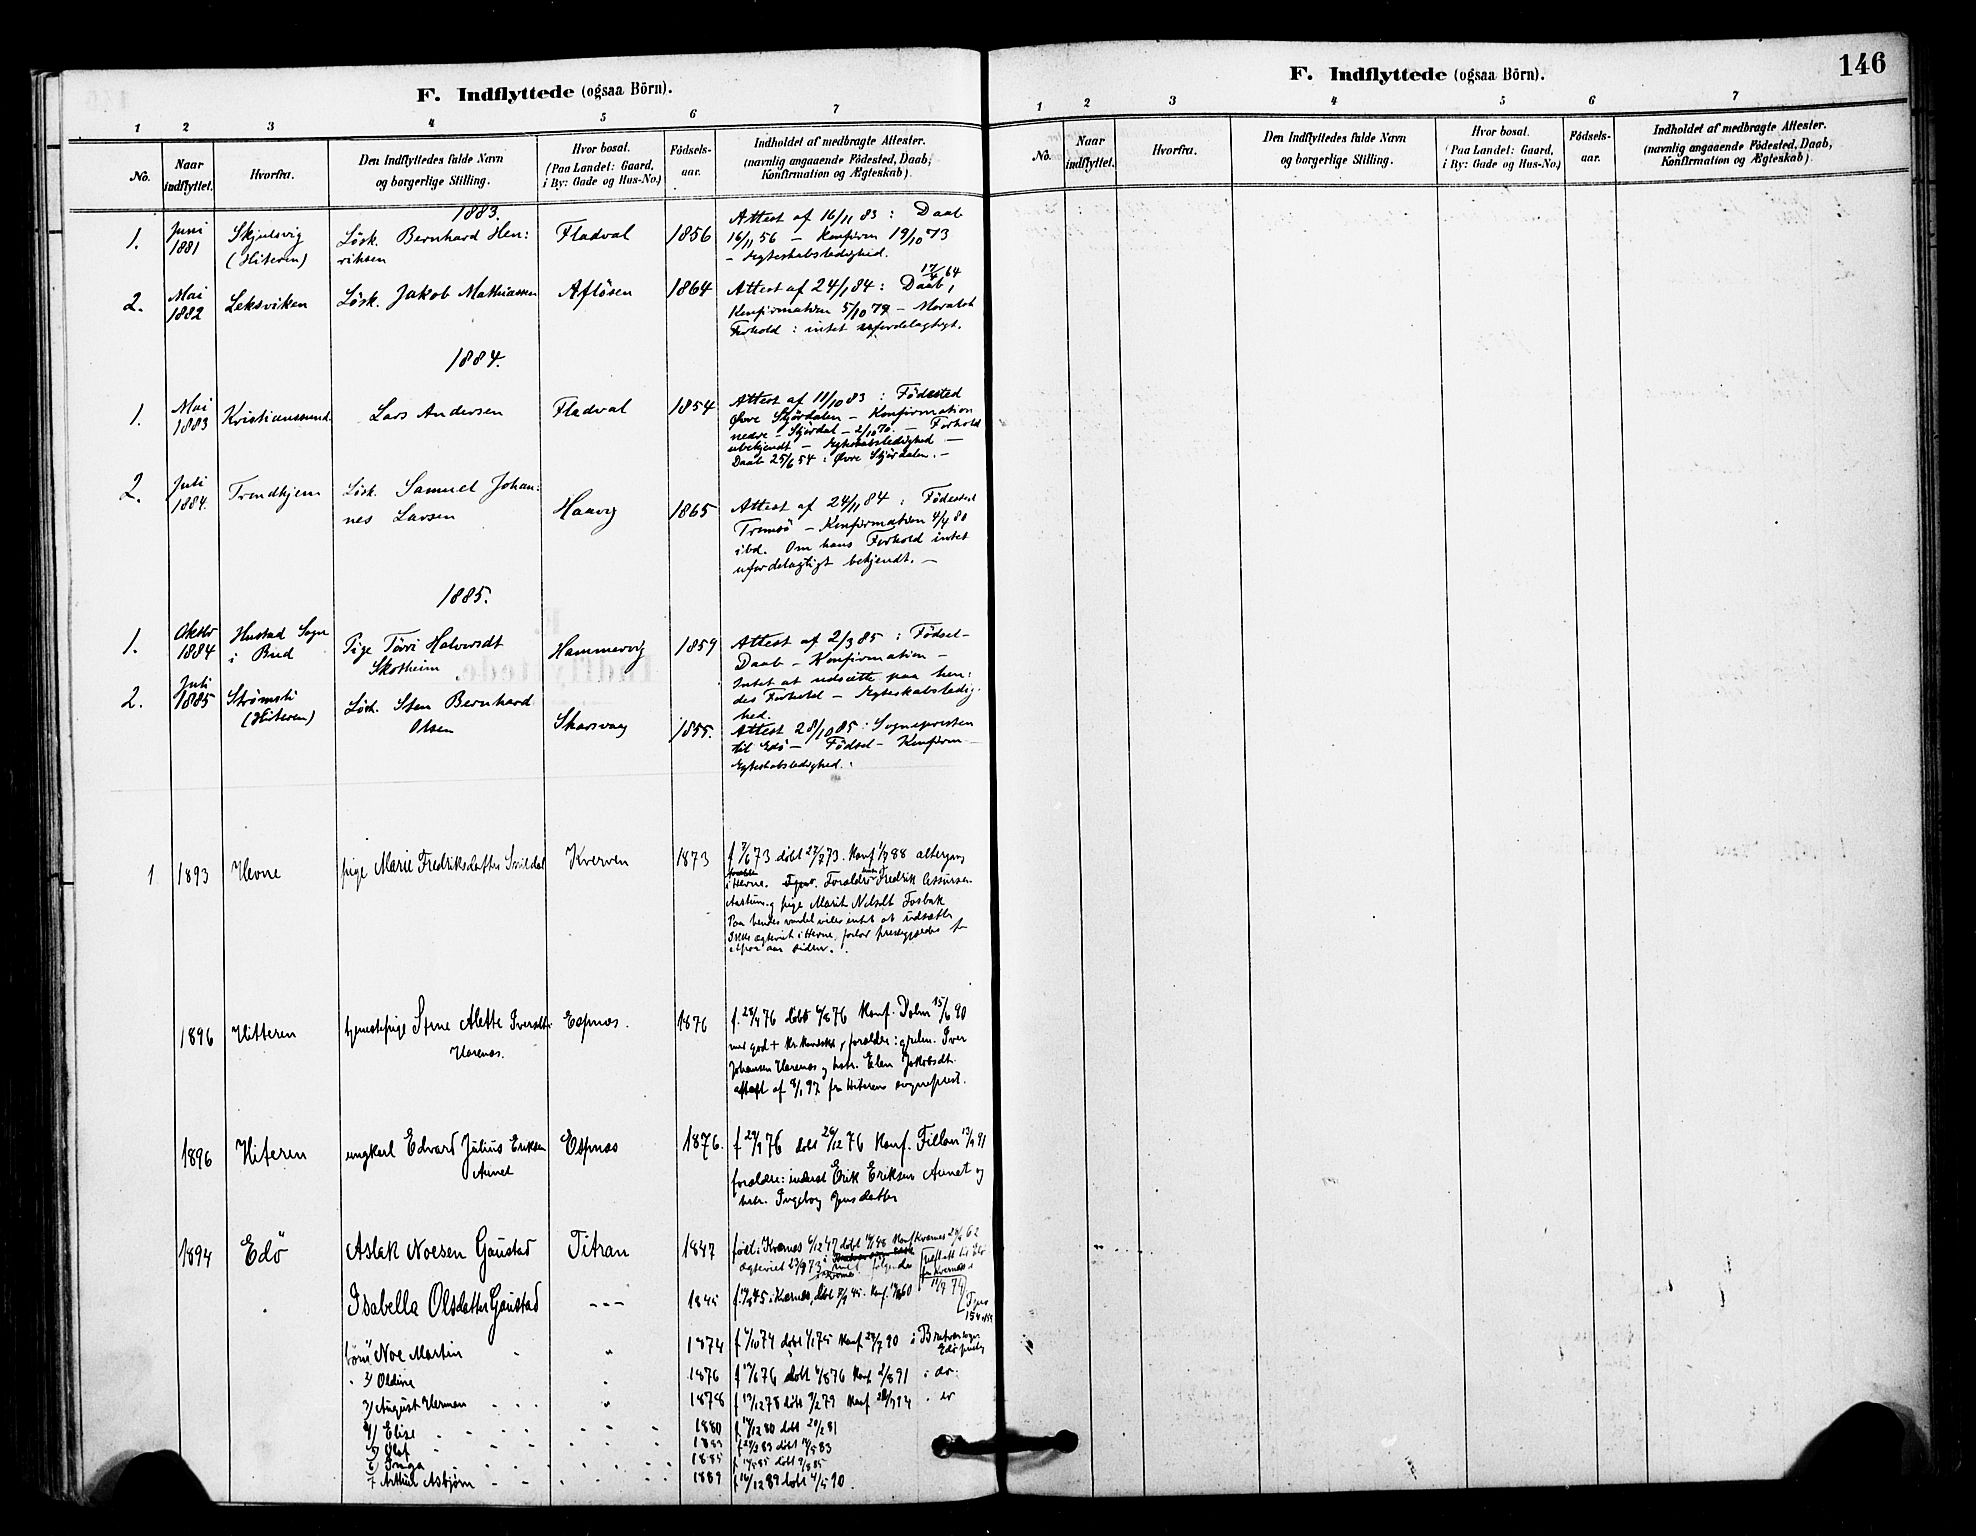 F. Indflyttede (ogsaa Börn).
1 2 3 4 5 6 7
No.
Naar indflyttet.
Hvorfra.
Den Indflyttedes fulde Navn
og borgerlige Stilling.
Hvor bosat.
(Paa Landet: Gaard,
i By: Gade og Hus-No.)
Födsels-
aar.
Indholdet af medbragte Attester.
(navnlig angaaende Födested, Daab,
Konfirmation og Ægteskab).
1883.
1. Juni 1881 Skjulsvig (Hiteren) Løsk. Bernhard Hen:
riksen Fladval 1856 Attest af 16/11 83 : Daab
16/11 56 – Konfirm 19/10 73
– Ægteskabsledighed.
2. Mai 1882 Leksviken Løsk. Jakob Mathiassen Afløsen 1864 Attest af 24/1 84 : Daab, 17/4 64
Konfirmation 5/10 79 – Moralsk
Forhold : intet ufordelagtigt.
1884.
1. Mai 1883 Kristianssund Lars Andersen Fladval 1854 Attest af 11/10 83 : Födested
Øvre Stjørdalen – Konfirmation
nedre – Stjørdal – 2/10 70. – Forhold
ubekjendt – Ægteskabsledighed –
Daab 25/6 54 i Øvre Stjørdalen. –
2. Juli 1884. Trondhjem Løsk. Samuel Johan:
nes Larsen Haavig 1865 Attest af 24/11 84 : Födested
Tromsö – Konfirmation 4/4 80
ibd. Om hans Forhold intet
ufordelagtigt bekjendt. –
1885.
1. Oktbr 1884 Hustad Sogn
i Bud Pige Törri Halvorsdt
Skotheim Hammervig 1859 Attest af 2/3 85 : Födsel –
Daab – Konfirmation –
Intet at udsætte paa hen:
des Forhold – Ægteskabsledig:
hed.
2. Juli 1885 Strømsti
(Hiteren) Løsk. Sten Bernhard
Olsen Skarsvaag 1855. Attest 28/10 85 : Sognepresten
til Edö – Födsel – Konfirm –
Ægteskabsledighed.
1 1893 Hevne pige Marie Fredriksdatter Snildal Kverven 1873 f 7/6 73 döbt 27/7 73. Konf 1/7 88 altergang
i Hevne. Foraldre Fredrik Assursen
og pige Marit Nilsdt Fosbak
Paa hendes vandel vides intet at udsætte
1896 Hitteren tjenestepige Stine Alette Iversdtr
Havnas. Espnæs. 1876 f. 28/7 76 döbt 6/8 76 Konf. Dolm 15/6 90
med god + kr. kundskb, foraldre: Iver
Johansen Havnas og hstr. Elen Jakobsdt.
attest af 8/1 97 fra Hiterens sogneprest.
1896 Hiteren ungkarl Edvard Julius Eriksen
Aunet Espnæs 1876. f 29/9 76 döbt 26/12 76 Konf. Fillan 13/9 91
foraldre: inderst Erik Eriksen Aunet og
hstr. Ingeborg Jensdatter
1894 Edö Aslak Noesen Gaustad Titran 1847 født i Kvernes 6/12 47 Konf Kvernes 29/6 62
ægteviet 23/9 73
Isabella Olsdatter Gaustad - - - 1845
börn Noe Martin " 1874 f 6/10 74 döbt 6/1 75 Konf 20/7 90 i Bratvær sogn
Edö præstg
2) Oldine " 1876 f 17/6 76 döbt 6/8 76 Konf 2/8 91
3) August Herman " 1878 f 13/12 78 döbt 9/2 79 Konf
4) Elise 1880 f 17/12 80 döbt 20/2 81
5) Olaf 1883 f 27/3 83 döbt 14/5 83
6) Inga 1885 f 14/5 85 döbt 9/8 85
7 Arthur Asbjørn 1889 f 16/12 89 döbt 4/5 90.
F. Indflyttede (ogsaa Börn).
146
1 2 3 4 5 6 7
No.
Naar
indflyttet.
Hvorfra.
Den Indflyttedes fulde Navn
og borgerlige Stilling.
Hvor bosat.
(Paa Landet: Gaard,
i By: Gade og Hus-No.)
Födsels-
aar.
Indholdet af medbragte Attester.
(navnlig angaaende Födested, Daab,
Konfirmation og Ægteskab).